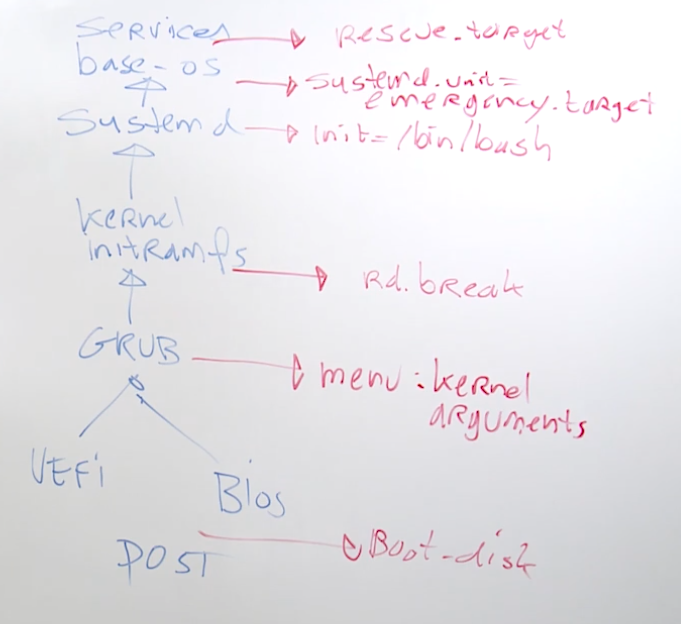 Services → Rescue.target
base-os → systemd.unit=
emergency.target
Systemd → init=/bin/bash
kernel
initramfs → Rd.break
GRUB → menu: kernel
arguments
UEFi
Bios
POST → Boot-disk